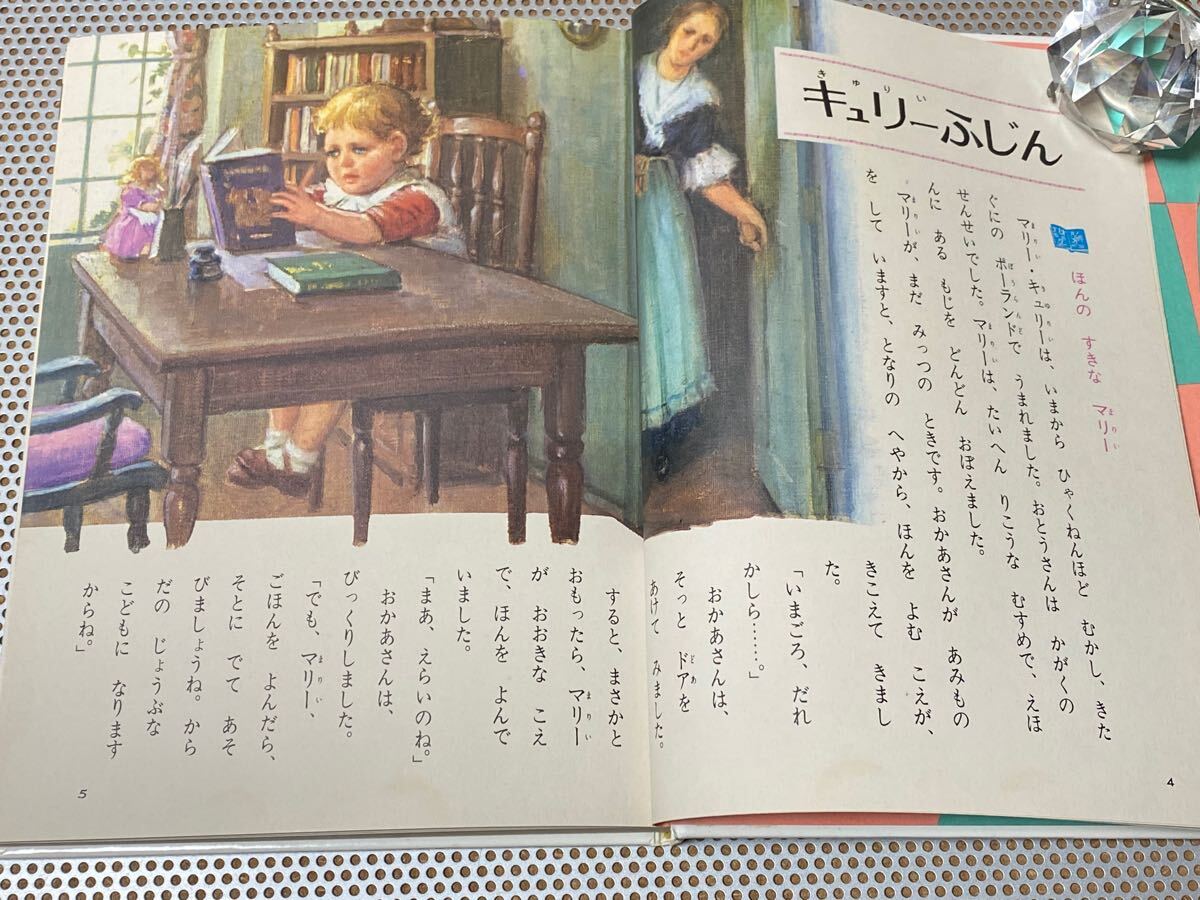 キュリーふじん
ほんの すきな マリー
マリー・キュリーは、いまから ひゃくねんほど むかし、きた
ぐにの ポーランドで うまれました。おとうさんは かがくの
せんせいでした。マリーは、たいへん りこうな むすめで、えほ
んに ある もじを どんどん おぼえました。
マリーが、まだ みっつの ときです。おかあさんが あみもの
を して いますと、となりの へやから、ほんを よむ こえが、
きこえて きまし
た。
「いまごろ、だれ
かしら……。」
おかあさんは、
そっと ドアを
あけて みました。
4
すると、まさかと
おもったら、マリー
が おおきな こえ
で、ほんを よんで
いました。
「まあ、えらいのね。」
おかあさんは、
びっくりしました。
「でも、マリー、
ごほんを よんだら、
そとに でて あそ
びましょうね。から
だの じょうぶな
こどもに なります
からね。」
5